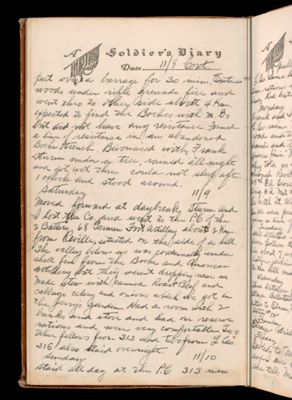 A Soldier's Diary
Date 11/8 Cont.
put over a barrage for 30 min. Entered
woods under rifle grenade fire and
went thro to other side about 4 km.
expected to find the Boches with M. Gs
but did not have any resistance. Formed
a line of resistance in an abandoned
Boche trench. Bivouaced with Frank
Sturm under a tree, rained all night
and got wet thru could not sleep after
1 o'clock and stood around.
Saturday 11/9
Moved forward at daybreak, Sturm and
I lost the Co. and went to the P.C. of the
2 Battery, 68 German Foot Artillery about 3 km
from Reville, situated on the side of a hill
The valley below us was continually under
shell fire from the Boche and American
artillery but they weren't dropping near us
Made stew with canned Roast Beef and
cabbage celery and onions which we got in
the Jerry's garden. Had a room with 2
bunks and stove and had our reserve
rations and were very comfortable. Two
other fellows from 313 and two from L Co.
316 also staid overnight.
Sunday 11/10
Staid all day at the P.C. 313 men